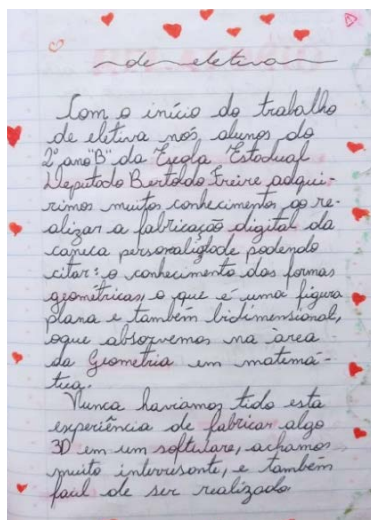 de eletiva
Com o início do trabalho
de eletiva nós, alunos do
2º ano "B" da Escola Estadual
Deputado Bertoldo Freire adqui-
rimos muitos conhecimentos ao re-
alizar a fabricação digital da
caneca personalizada podendo
citar: o conhecimento das formas
geométricas, o que é uma figura
plana e também bidimensional,
oque absorvemos na área
da Geometria em matemá-
tica.
Nunca haviamos tido esta
experiência de fabricar algo
3D em um software, achamos
muito interresante, e também
facil de ser realizado